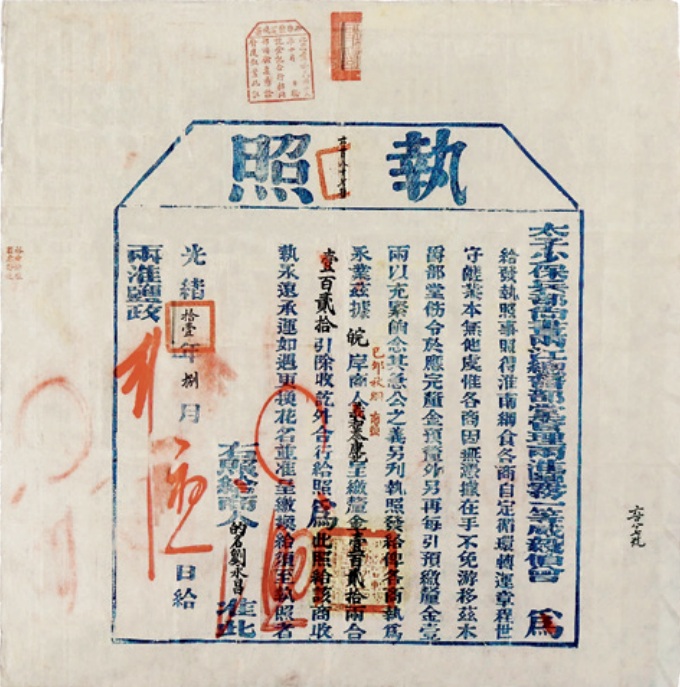 執照
太子少保兵部尚書兩江總督部堂兼管理兩淮鹽務一等威毅伯曾 為
給發執照事照得淮南綱食各商自定循環轉運章程世
守能業本無他虞惟各商因無憑據在手不免游移茲本
爵部堂飭令於應完釐金預釐外另再每引預繳釐金壹
兩以充緊餉念其急公之義另刊執照發給俾各商執為
永業茲據 皖 岸商人 呈繳釐金壹百貳拾兩合
壹百貳拾引除收訖外合行給照為此照給該商收
執永遠承運如遇更換花名並准呈繳換給須至執照者
右照給商人 的名劉永昌 准此
光緒拾壹年捌月 日給
兩淮鹽政